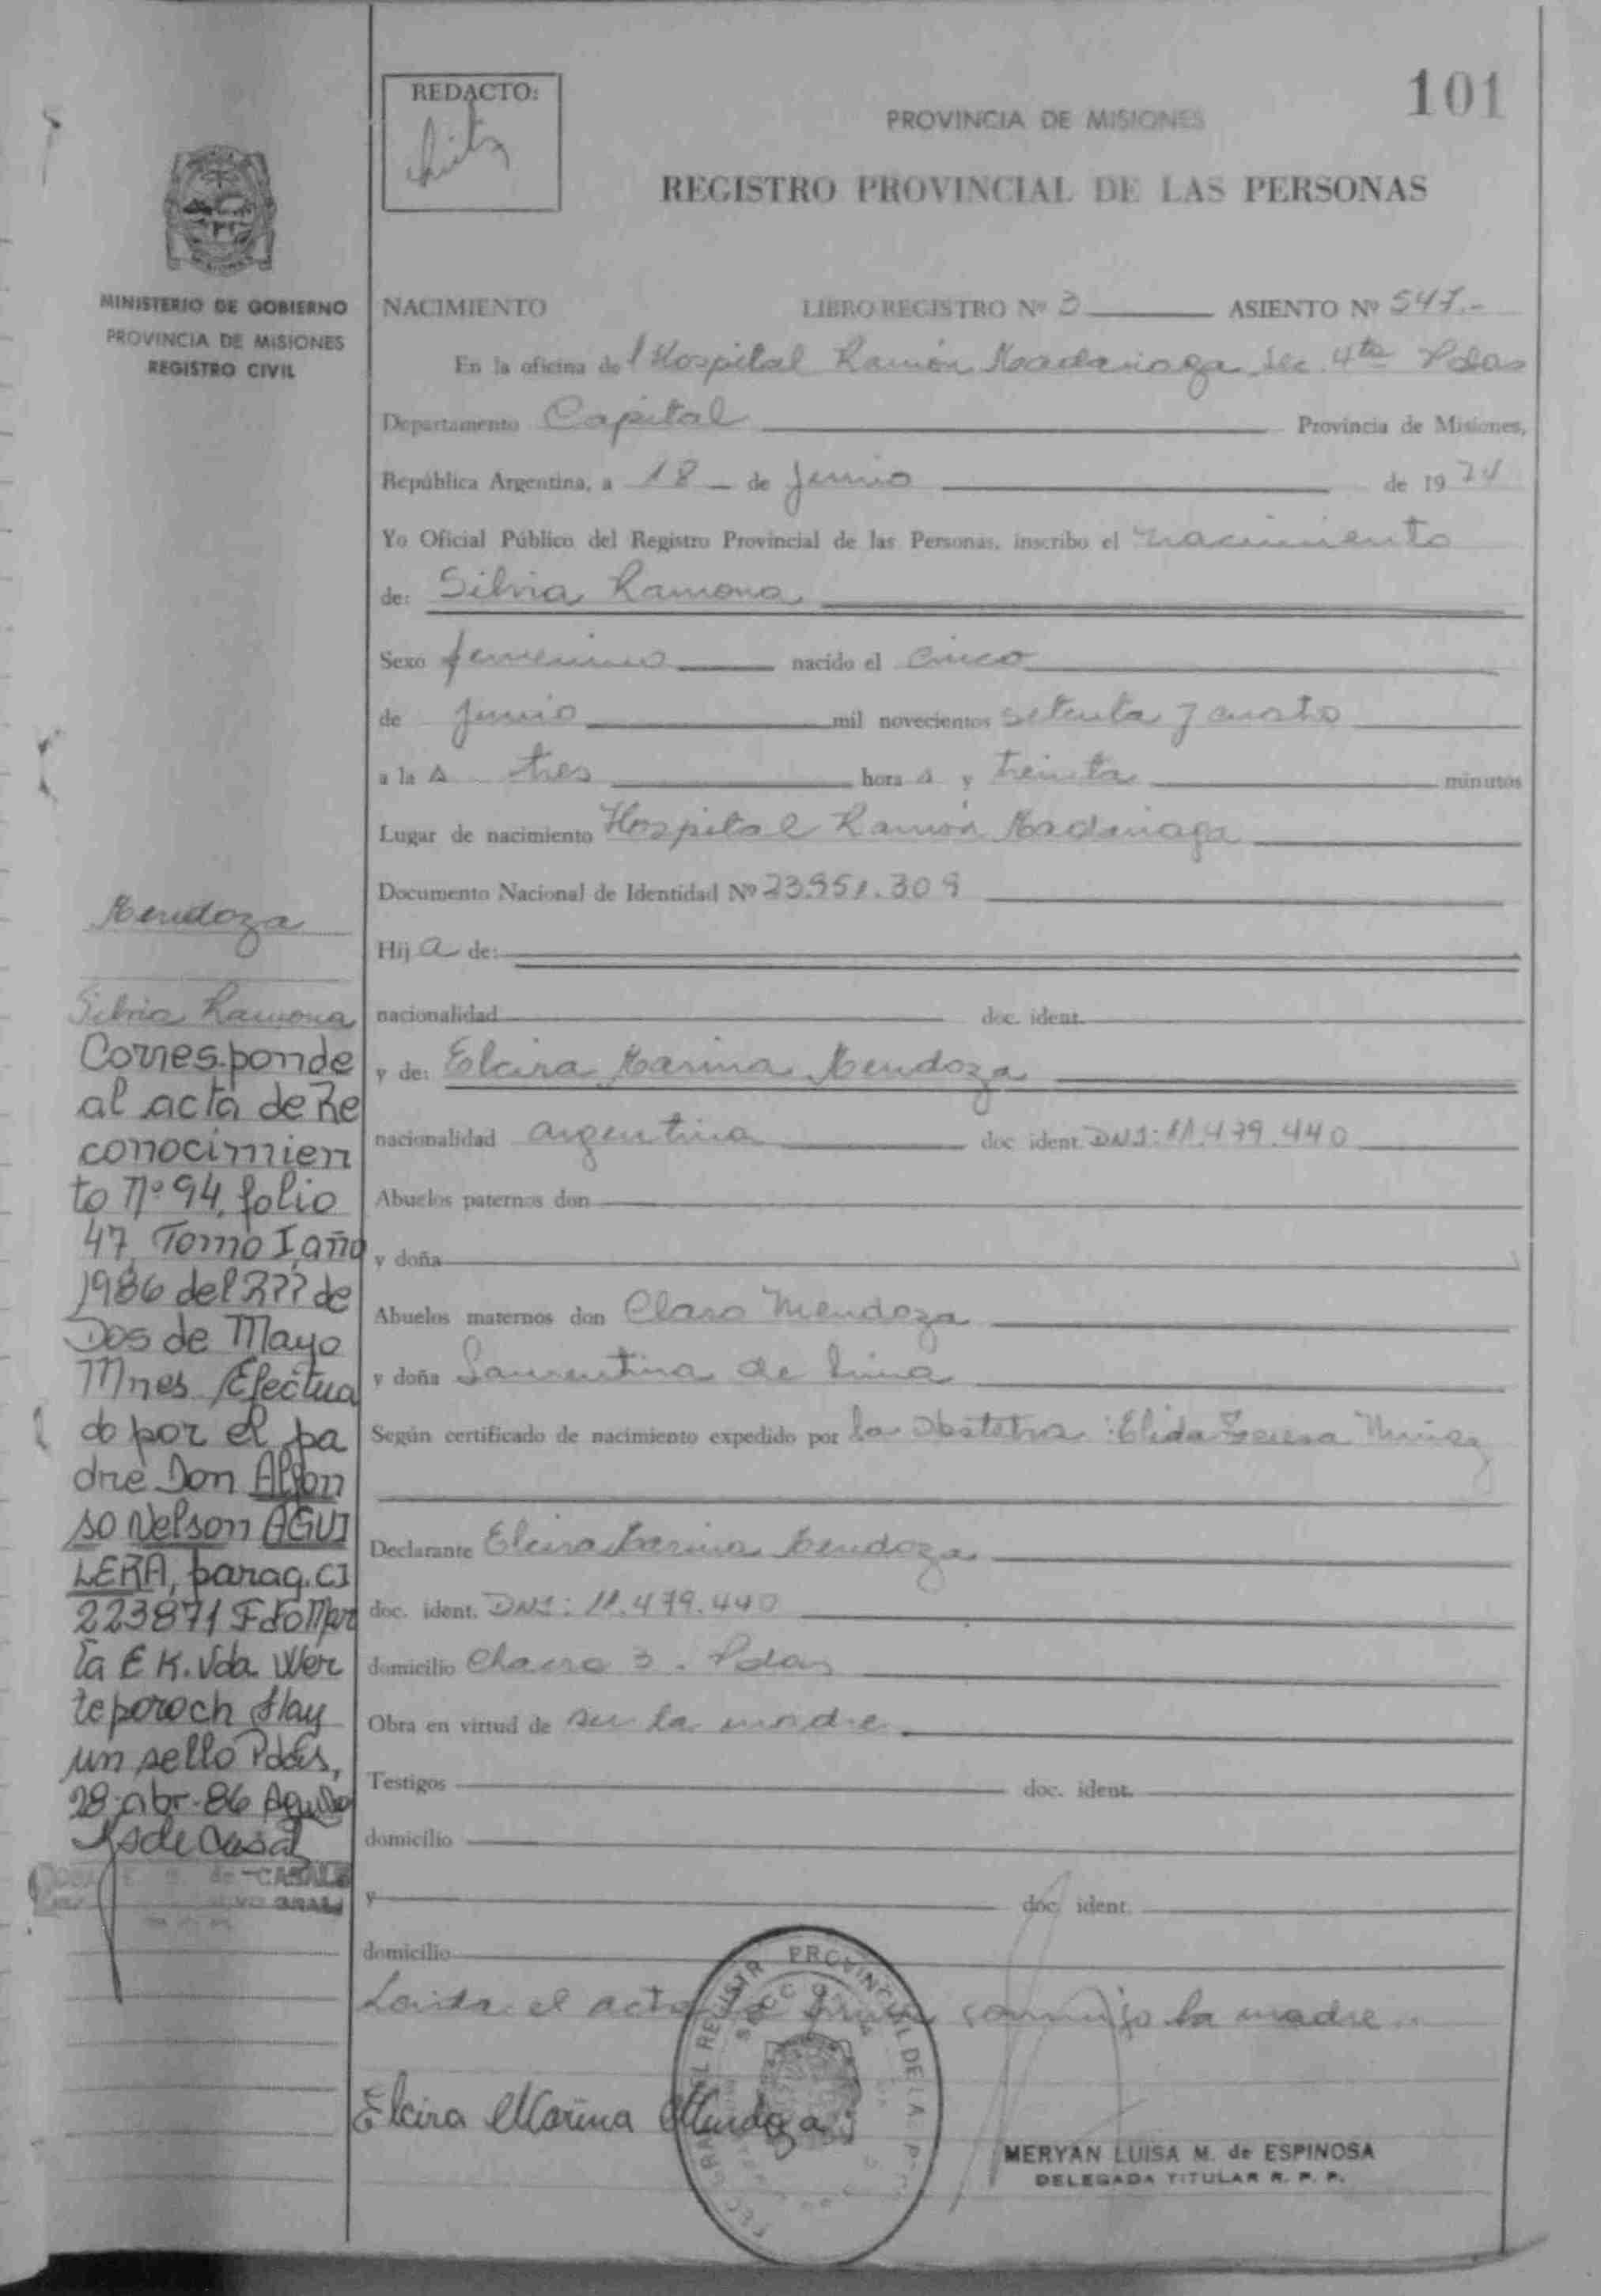 101
REDACTO:
PROVINCIA DE MISIONES
REGISTRO PROVINCIAL DE LAS PERSONAS
MINISTERIO DE GOBIERNO
PROVINCIA DE MISIONES
REGISTRO CIVIL
NACIMIENTO LIBRO REGISTRO Nº 3 ASIENTO Nº 547.-
En la oficina del Hospital Ramón Madariaga Sec. 4ta Pdas
Departamento Capital Provincia de Misiones,
República Argentina, a 18 de Junio de 1974
Yo Oficial Público del Registro Provincial de las Personas, inscribo el nacimiento
de: Silvia Ramona
Sexo femenino nacido el cinco
de junio mil novecientos setenta y cuatro
a las tres horas y treinta minutos
Lugar de nacimiento Hospital Ramón Madariaga
Documento Nacional de Identidad Nº 23.951.309
Hija de:
nacionalidad doc. ident.
y de: Elcira Marina Mendoza
nacionalidad argentina doc ident. DNI: 11.479.440
Abuelos paternos don
y doña
Abuelos maternos don Claro Mendoza
y doña Laurentina de Lima
Según certificado de nacimiento expedido por la Obstetra: Elida Teresa
Declarante Elcira Marina Mendoza
doc. ident. DNI: 11.479.440
domicilio Chacra 3. Pdas
Obra en virtud de ser la madre
Testigos doc. ident.
domicilio
y doc. ident.
domicilio
Leida el acta la firma conmigo la madre
Elcira Marina Mendoza
MERYAN LUISA M. de ESPINOSA
DELEGADA TITULAR R. P. P.
Mendoza
Silvia Ramona
Corresponde
al acta de Re
conocimien
to Nº 94, folio
47, Tomo I, año
1986 del RPP de
Dos de Mayo
Mnes. Efectua
do por el pa
dre Don Alfon
so Nelson AGUI
LERA, parag. CI
223871 Fdo Mar
ta E K. Vda Wer
teporoch Hay
un sello Pdas,
28-abr-86
de CASALS
GRAL